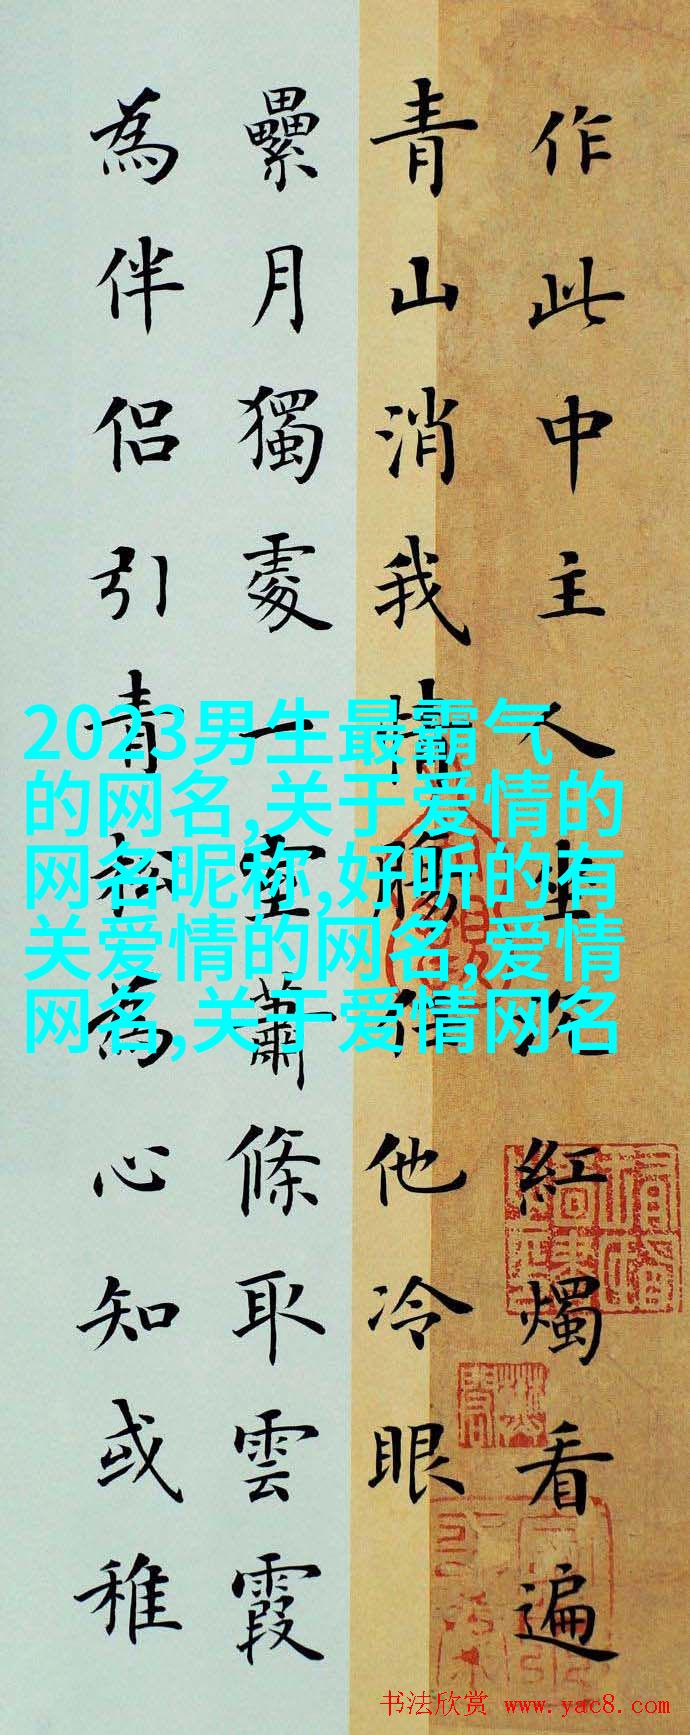 作此中主人坐紅燭看遍
青山消我情腸任他冷眼
纍月獨處一室蕭條取雲霞
為伴侶引青松為心知或稚
2023男生最霸气
的网名,关于爱情的
网名昵称,好听的有
关爱情的网名,爱情
网名,关于爱情网名
书法欣赏 www.yac8.com